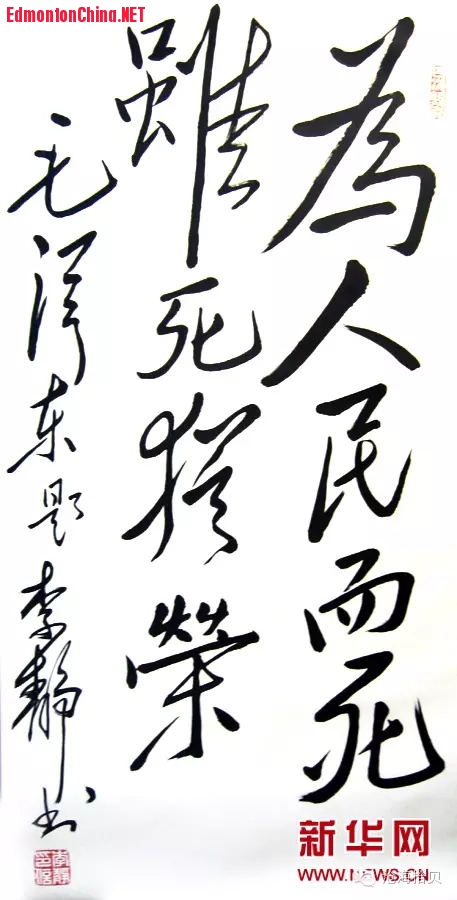 EdmontonChina.NET
為人民而死
雖死猶榮
毛泽东题李静书
新华网
WWW.NEWS.CN
沧海拾贝